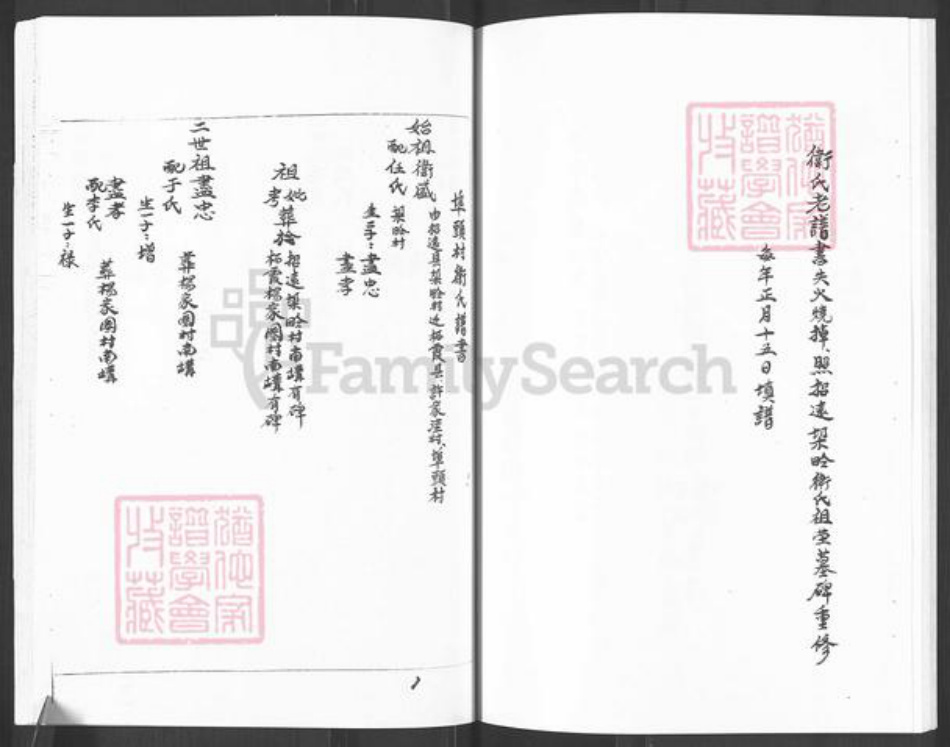 衛氏老譜書失火燒掉、照招遠梁昑衛氏祖塋墓碑重修
每年正月十五日填譜
埠頭村衛氏譜書
始祖衛盛 由招遠县梁昑村迁栖霞县、許家洼村、埠頭村
配任氏 梁昑村
生二子：盡忠
盡孝
祖妣考葬於招遠梁昑村南塋有碑
栖霞楊家圈村南塋有碑
二世祖盡忠 葬楊家圈村南塋
配于氏
生一子：增
盡孝 葬楊家圈村南塋
配李氏
生一子：禄
猶他家譜學會收藏
猶他家譜學會收藏
FamilySearch